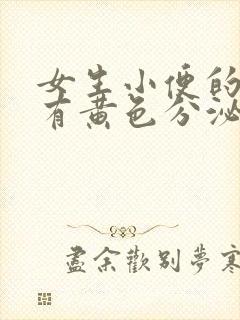 女生小便的
有黄色分泌
盡余歡别夢寒